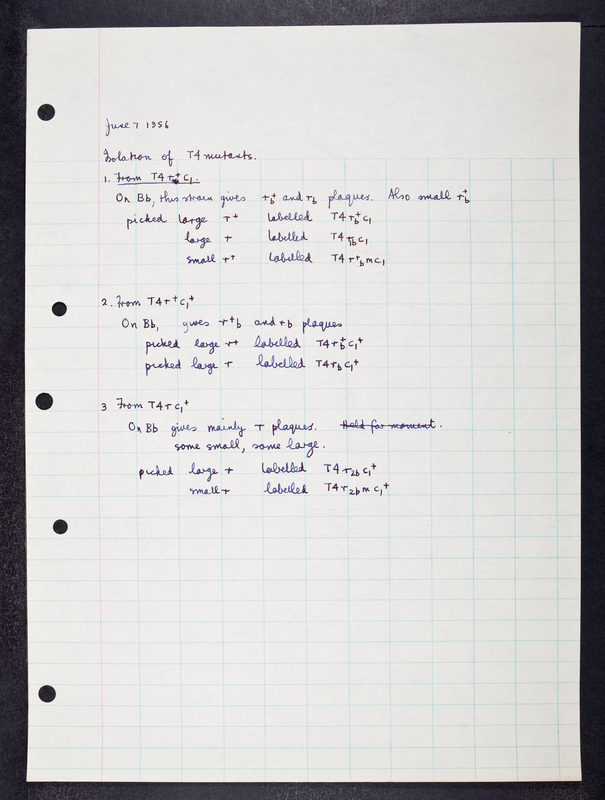 June 7 1956
Isolation of T4 mutants.
1. From T4 r⁺ c₁.
On Bb, this strain gives r_b⁺ and r_b plaques. Also small r_b⁺
picked large r⁺ labelled T4 r_b⁺ c₁
large r labelled T4 r_b c₁
small r⁺ labelled T4 r_b⁺ m c₁
2. From T4 r⁺ c₁⁺
On Bb, gives r⁺b and r b plaques
picked large r⁺ labelled T4 r_b⁺ c₁⁺
picked large r labelled T4 r_b c₁⁺
3 From T4 r c₁⁺
On Bb gives mainly r plaques. Held for moment.
some small, some large.
picked large r labelled T4 r_2b c₁⁺
small r labelled T4 r_2b m c₁⁺